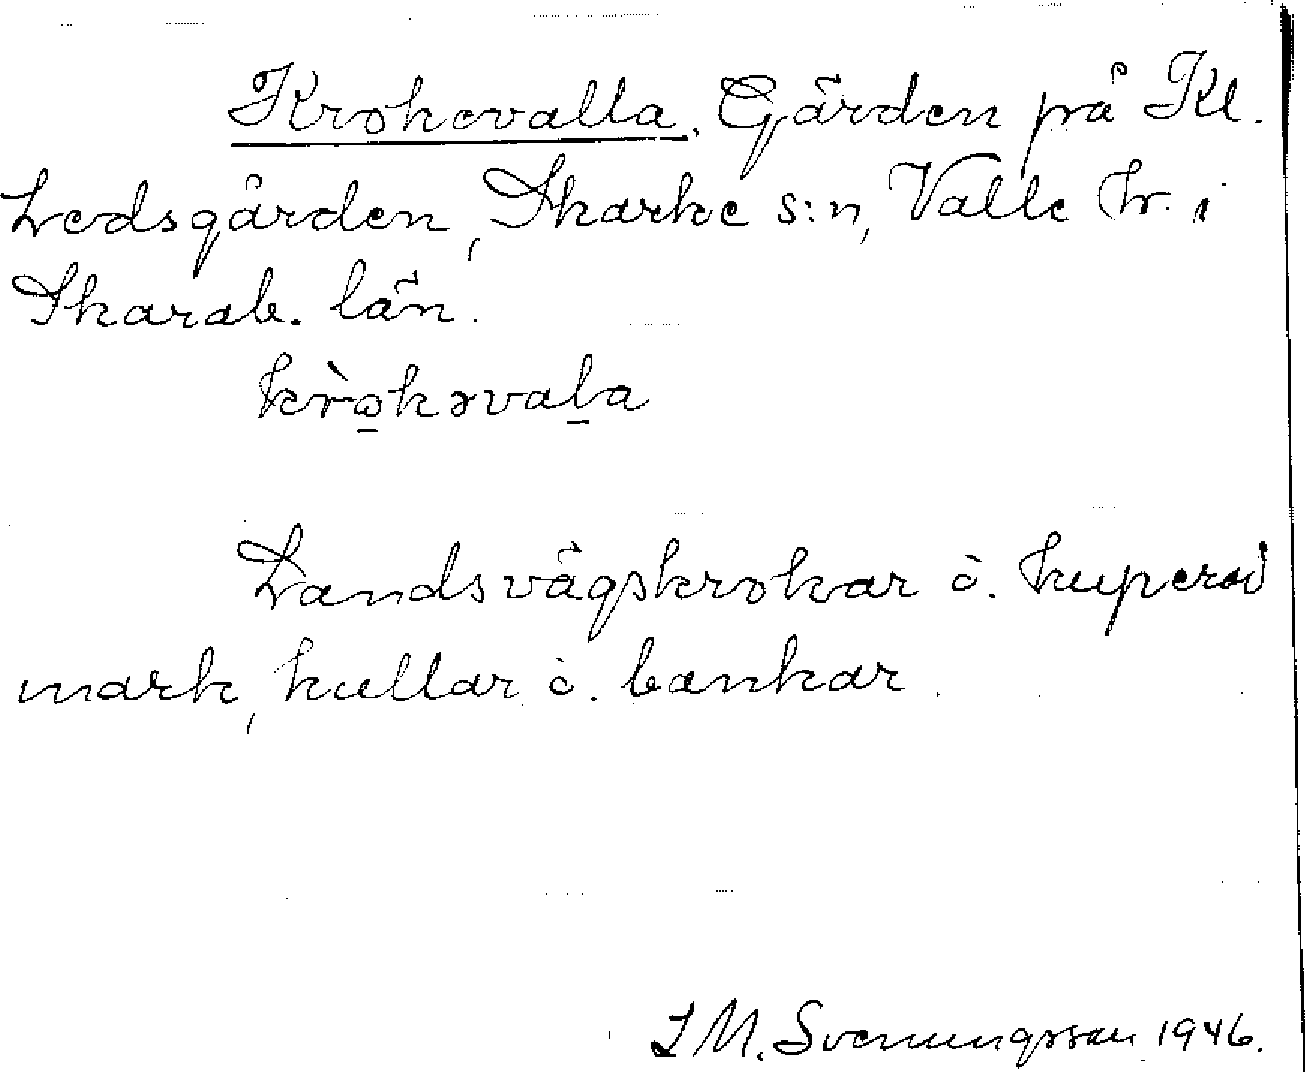 Krokevalla. Gärden på Kl.
Ledsgården, Skarke s:n, Valle hr. i
Skarab. län.
kròkəvaḻa
Landsvägskrokar o. kuperad
mark, kullar o. backar.
I M. Svenungsson 1946.